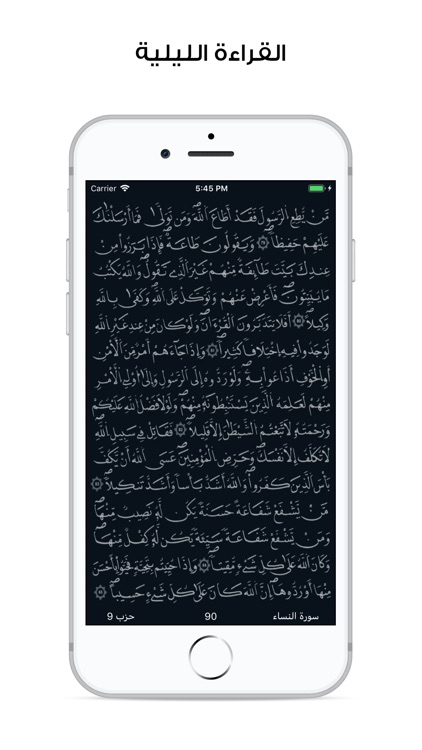 القراءة الليلية
Carrier 5:45 PM
مَّن يُطِعِ ٱلرَّسُولَ فَقَدۡ أَطَاعَ ٱللَّهَۖ وَمَن تَوَلَّىٰ فَمَآ أَرۡسَلۡنَٰكَ
عَلَيۡهِمۡ حَفِيظٗا ۞ وَيَقُولُونَ طَاعَةٞ فَإِذَا بَرَزُواْ مِنۡ
عِندِكَ بَيَّتَ طَآئِفَةٞ مِّنۡهُمۡ غَيۡرَ ٱلَّذِي تَقُولُۖ وَٱللَّهُ يَكۡتُبُ
مَا يُبَيِّتُونَۖ فَأَعۡرِضۡ عَنۡهُمۡ وَتَوَكَّلۡ عَلَى ٱللَّهِۖ وَكَفَىٰ بِٱللَّهِ
وَكِيلًاۖ ۞ أَفَلَا يَتَدَبَّرُونَ ٱلۡقُرۡءَانَۖ وَلَوۡ كَانَ مِنۡ عِندِ غَيۡرِ ٱللَّهِ
لَوَجَدُواْ فِيهِ ٱخۡتِلَٰفٗا كَثِيرٗاۖ ۞ وَإِذَا جَآءَهُمۡ أَمۡرٞ مِّنَ ٱلۡأَمۡنِ
أَوِ ٱلۡخَوۡفِ أَذَاعُواْ بِهِۦۖ وَلَوۡ رَدُّوهُ إِلَى ٱلرَّسُولِ وَإِلَىٰٓ أُوْلِي ٱلۡأَمۡرِ
مِنۡهُمۡ لَعَلِمَهُ ٱلَّذِينَ يَسۡتَنۢبِطُونَهُۥ مِنۡهُمۡۖ وَلَوۡلَا فَضۡلُ ٱللَّهِ عَلَيۡكُمۡ
وَرَحۡمَتُهُۥ لَٱتَّبَعۡتُمُ ٱلشَّيۡطَٰنَ إِلَّا قَلِيلٗاۖ ۞ فَقَٰتِلۡ فِي سَبِيلِ ٱللَّهِ
لَا تُكَلَّفُ إِلَّا نَفۡسَكَۖ وَحَرِّضِ ٱلۡمُؤۡمِنِينَۖ عَسَى ٱللَّهُ أَن يَكُفَّ
بَأۡسَ ٱلَّذِينَ كَفَرُواْۖ وَٱللَّهُ أَشَدُّ بَأۡسٗا وَأَشَدُّ تَنكِيلٗاۖ ۞
مَّن يَشۡفَعۡ شَفَٰعَةً حَسَنَةٗ يَكُن لَّهُۥ نَصِيبٞ مِّنۡهَاۖ
وَمَن يَشۡفَعۡ شَفَٰعَةٗ سَيِّئَةٗ يَكُن لَّهُۥ كِفۡلٞ مِّنۡهَاۖ
وَكَانَ ٱللَّهُ عَلَىٰ كُلِّ شَيۡءٖ مُّقِيتٗاۖ ۞ وَإِذَا حُيِّيتُم بِتَحِيَّةٖ فَحَيُّواْ بِأَحۡسَنَ
مِنۡهَآ أَوۡ رُدُّوهَآۖ إِنَّ ٱللَّهَ كَانَ عَلَىٰ كُلِّ شَيۡءٍ حَسِيبًاۖ ۞
سورة النساء 90 حزب 9